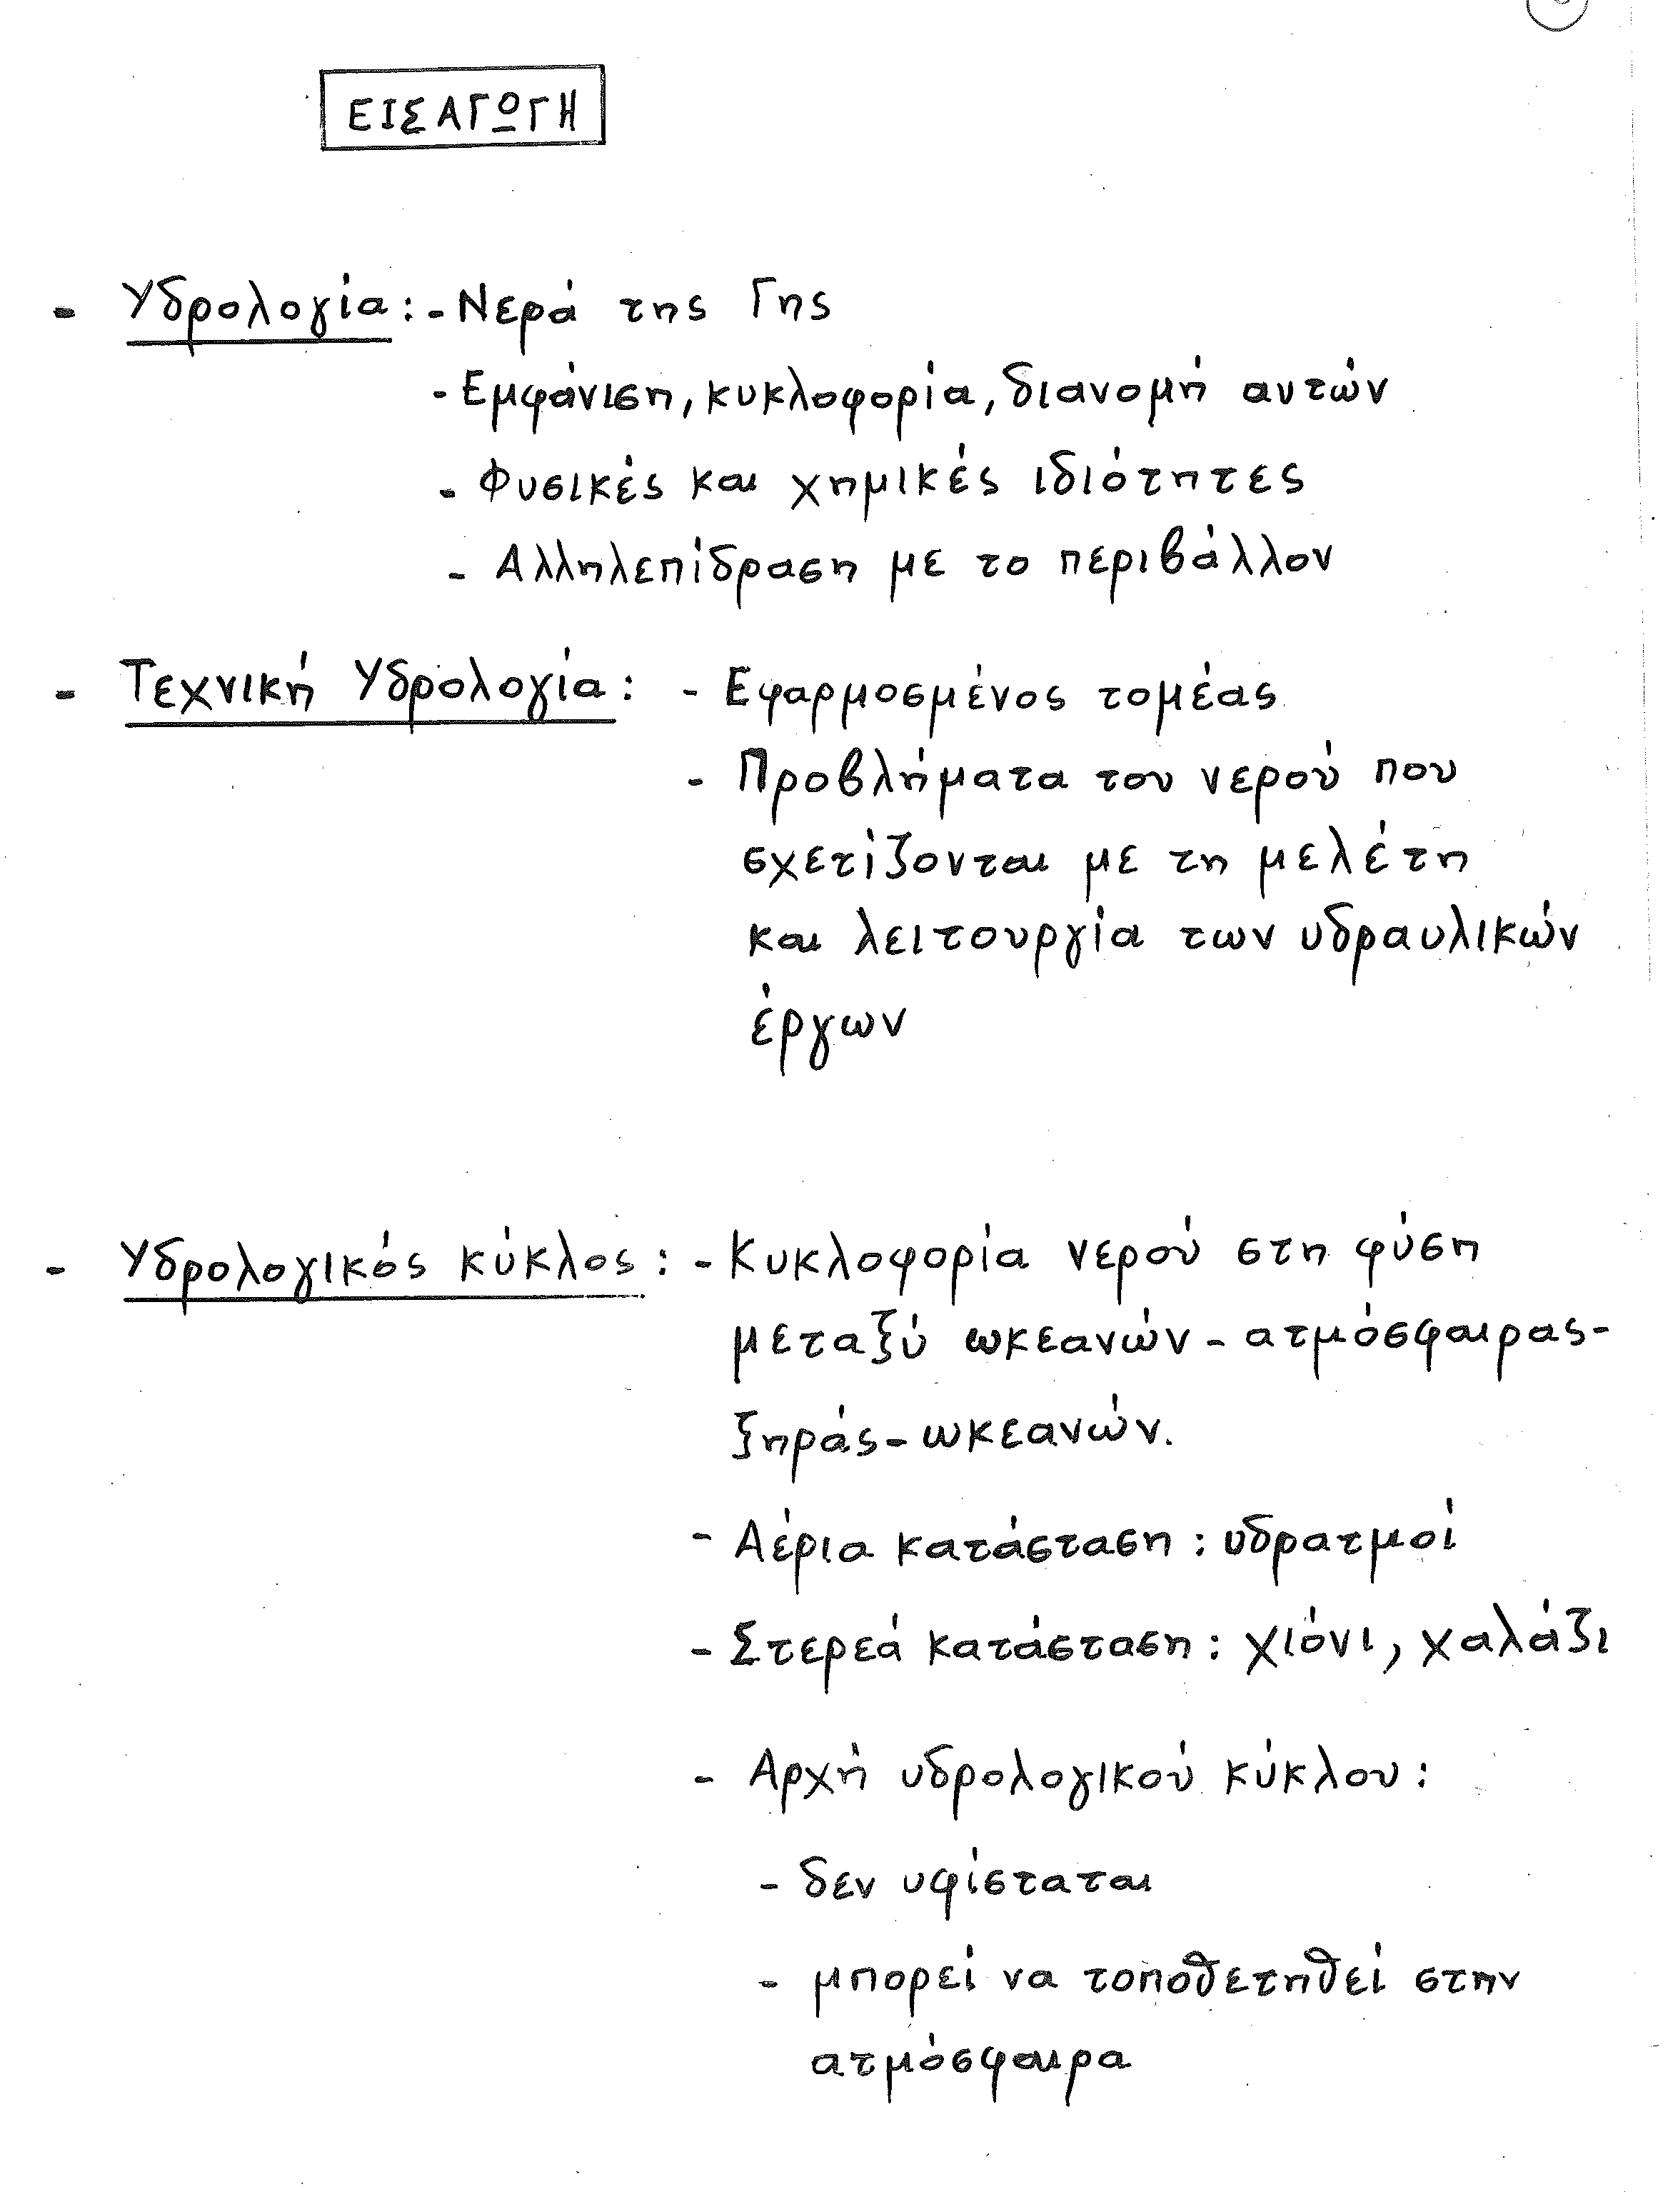 ΕΙΣΑΓΩΓΗ
- Υδρολογία: - Νερά της Γης
- Εμφάνιση, κυκλοφορία, διανομή αυτών
- Φυσικές και χημικές ιδιότητες
- Αλληλεπίδραση με το περιβάλλον
- Τεχνική Υδρολογία: - Εφαρμοσμένος τομέας
- Προβλήματα του νερού που
σχετίζονται με τη μελέτη
και λειτουργία των υδραυλικών
έργων
- Υδρολογικός κύκλος: - Κυκλοφορία νερού στη φύση
μεταξύ ωκεανών - ατμόσφαιρας -
ξηράς - ωκεανών.
- Αέρια κατάσταση: υδρατμοί
- Στερεά κατάσταση: χιόνι, χαλάζι
- Αρχή υδρολογικού κύκλου:
- δεν υφίσταται
- μπορεί να τοποθετηθεί στην
ατμόσφαιρα